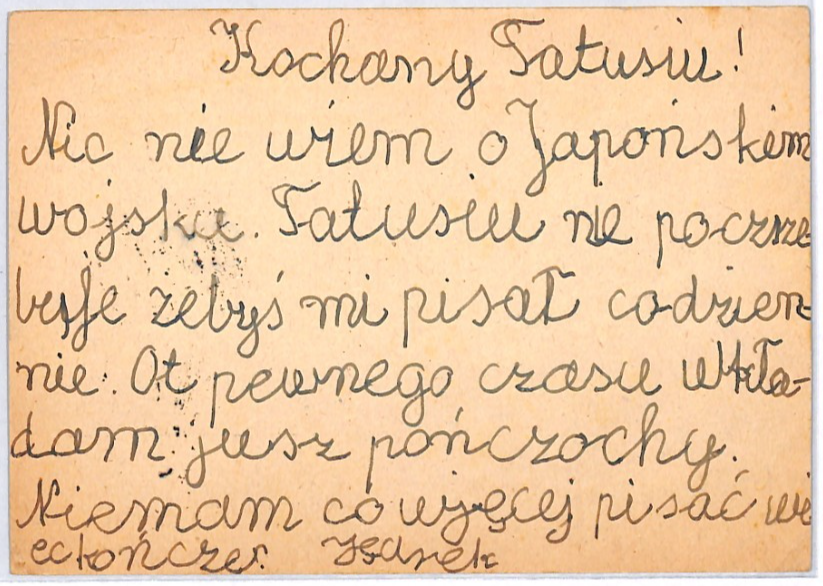 Kochany Tatusiu!
Nic nie wiem o Japońskim
wojsku. Tatusiu nie poczrze
buje żebyś mi pisał codzien-
nie. Ot pewnego czasu wkła-
dam jusz pończochy.
Niemam co wjęcej pisać wi
ec kończe. Jędrek